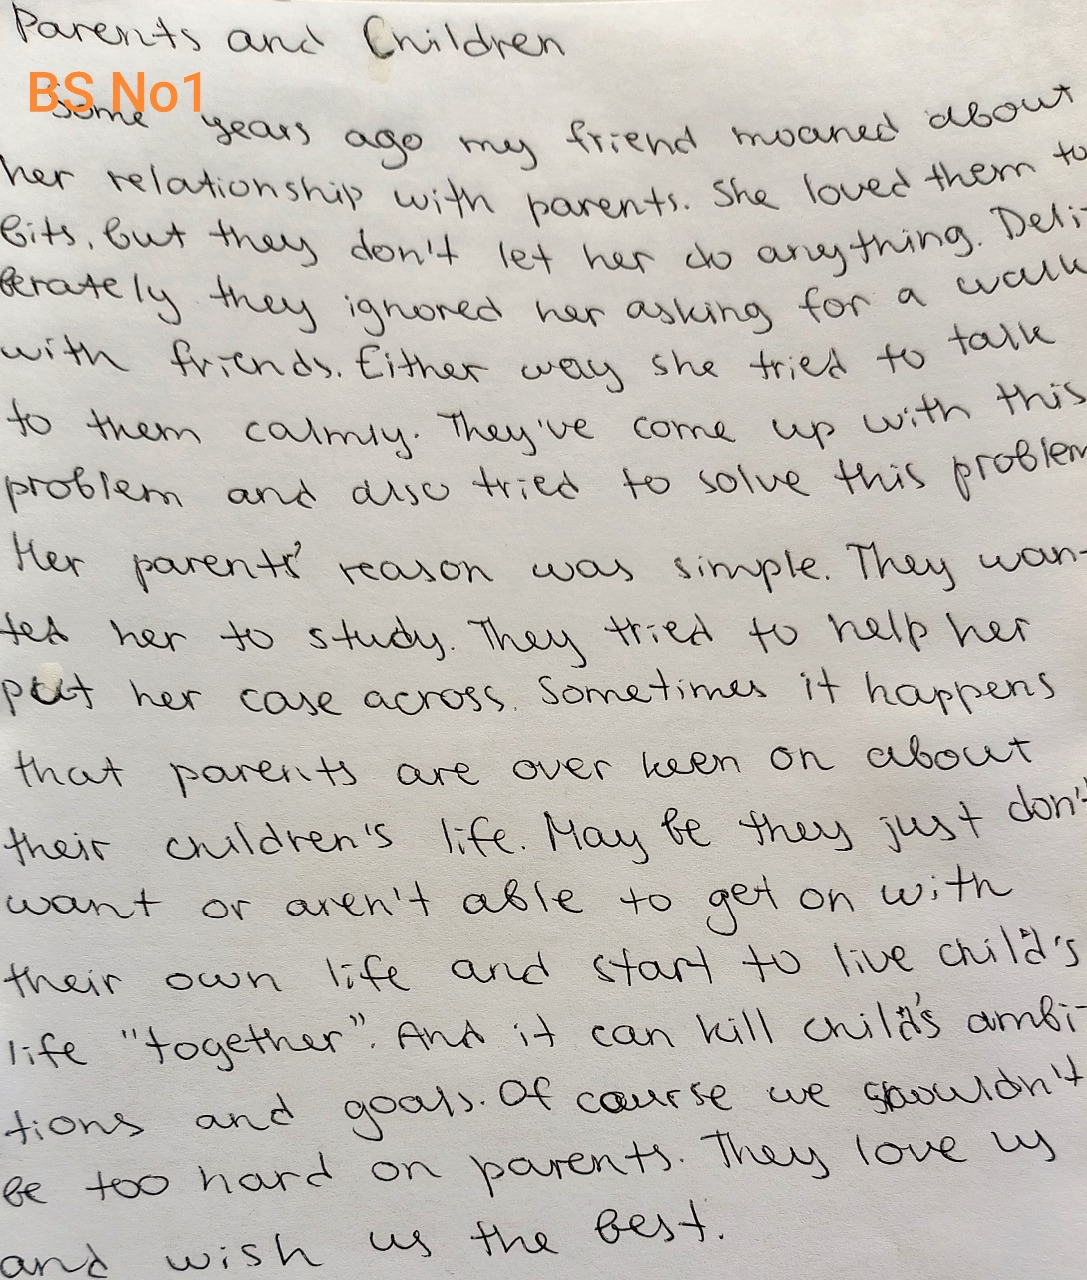 Parents and Children
BS No1
Some years ago my friend moaned about
her relationship with parents. She loved them to
bits, but they don't let her do anything. Deli-
berately they ignored her asking for a walk
with friends. Either way she tried to talk
to them calmly. They've come up with this
problem and also tried to solve this problem
Her parents' reason was simple. They wan-
ted her to study. They tried to help her
put her case across. Sometimes it happens
that parents are over keen on about
their children's life. May be they just don't
want or aren't able to get on with
their own life and start to live child's
life "together". And it can kill child's ambi-
tions and goals. Of course we shouldn't
be too hard on parents. They love us
and wish us the best.